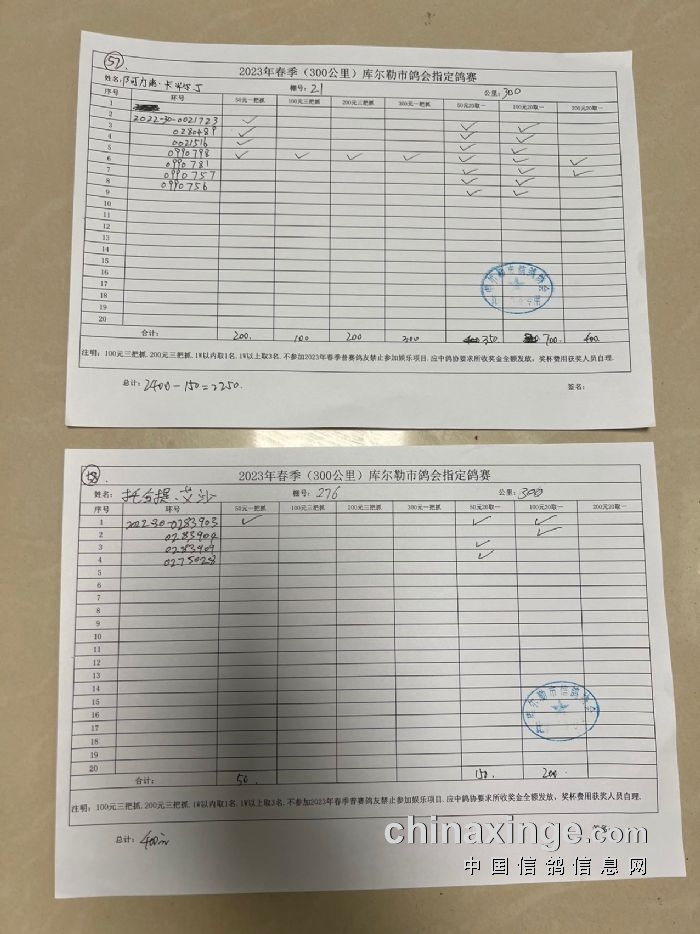 57
2023年春季（300公里）库尔勒市鸽会指定鸽赛
姓名: 棚号: 21 公里: 300
序号 环号 50元一把抓 100元三把抓 200元三把抓 300元一把抓 50元20取一 100元20取一 200元20取一
1
2 2022-30-0021723 ✓
3 0280489 ✓ ✓ ✓
4 0021516 ✓ ✓ ✓
5 0990798 ✓ ✓ ✓ ✓ ✓ ✓
6 0990781 ✓ ✓ ✓
7 0990757 ✓ ✓ ✓
8 0990756 ✓ ✓
9 ✓ ✓
10
11
12
13
14
15
16
17
18
19
20
合计: 200. 100 200 300 350 700. 400.
注明: 100元三把抓.200元三把抓.1W以内取1名.1W以上取3名.不参加2023年春季普赛鸽友禁止参加娱乐项目.应中鸽协要求所收奖金全额发放，奖杯费用获奖人员自理.
总计: 2400-150=2250. 签名:
库尔勒市信鸽协会
58
2023年春季（300公里）库尔勒市鸽会指定鸽赛
姓名: 棚号: 276 公里: 300
序号 环号 50元一把抓 100元三把抓 200元三把抓 300元一把抓 50元20取一 100元20取一 200元20取一
1 2022-30-0283903 ✓ ✓ ✓
2 0283904 ✓
3 0283909 ✓
4 0275028 ✓
5
6
7
8
9
10
11
12
13
14
15
16
17
18
19
20
合计: 50. 150. 200.
注明: 100元三把抓.200元三把抓.1W以内取1名.1W以上取3名.不参加2023年春季普赛鸽友禁止参加娱乐项目.应中鸽协要求所收奖金全额发放，奖杯费用获奖人员自理.
总计: 400
库尔勒市信鸽协会
chinaxinge.com
中国信鸽信息网